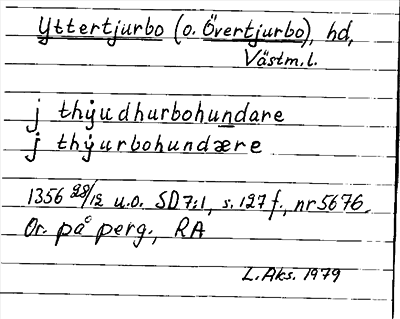 Yttertjurbo (o. Övertjurbo), hd,
Västm.l.
j thýudhurbohundare
j thýurbohundære
1356 28/12 u.o. SD7:1, s. 127 f., nr 5676.
Or. på perg., RA
L. Aks. 1979